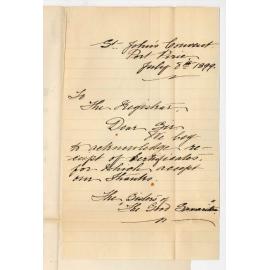 St. John's Convent
Port Pirie
July 3rd 1899.
To
The Registrar.
Dear Sir
We beg
to acknowledge re-
ceipt of Certificates.
for which accept
our thanks.
The Sisters of
The Good Samaritan